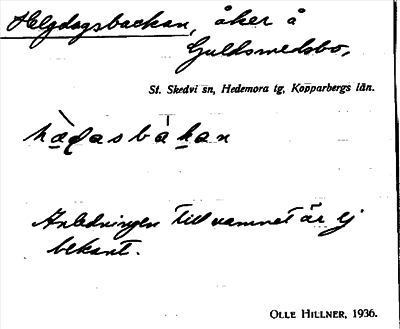 Helgdagsbackan, åker å
Guldsmedsbo,
St. Skedvi sn, Hedemora tg, Kopparbergs län.
Anledningen till namnet är ej
bekant.
OLLE HILLNER, 1936.